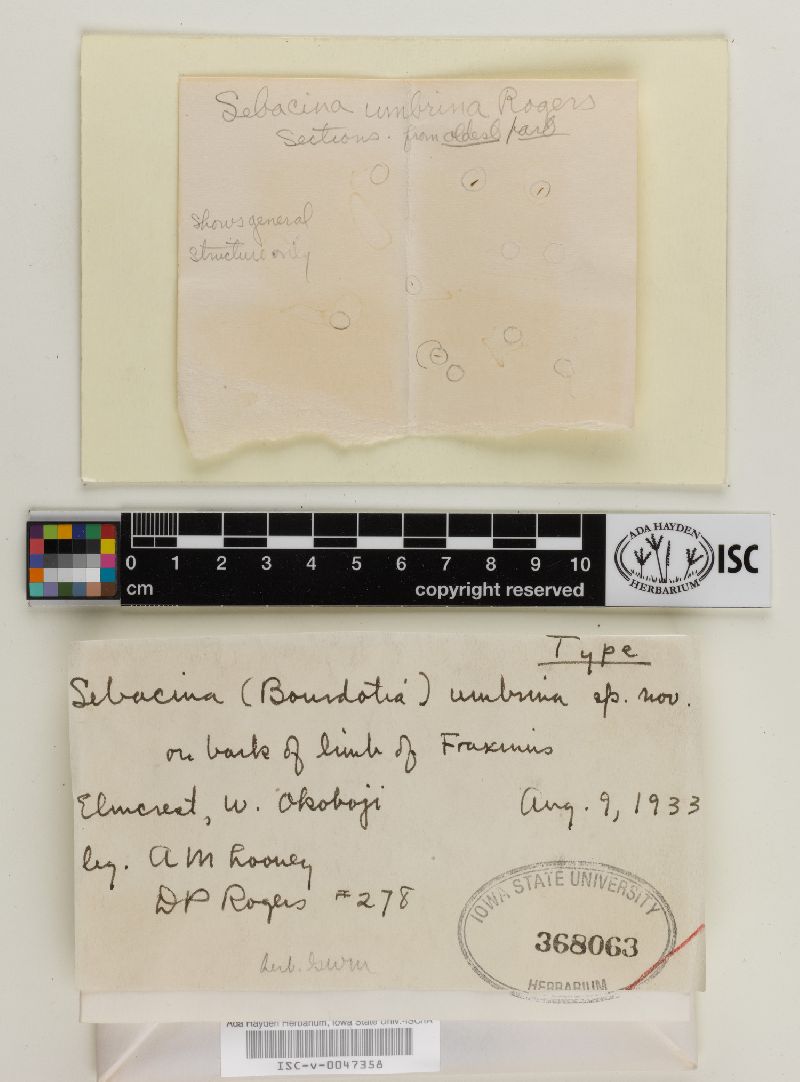 Sebacina umbrina Rogers
Sections. from oldest part
Shows general
structure only
0 1 2 3 4 5 6 7 8 9 10
cm
copyright reserved
ADA HAYDEN
HERBARIUM
ISC
Type
Sebacina (Bourdotia) umbrina sp. nov.
on bark of limb of Fraxinus
Elmcrest, W. Okoboji Aug. 9, 1933
leg. A M Looney
D P Rogers #278
Herb. GWM
IOWA STATE UNIVERSITY
368063
HERBARIUM
Ada Hayden Herbarium, Iowa State Univ.-ISC/IA
ISC-v-0047358